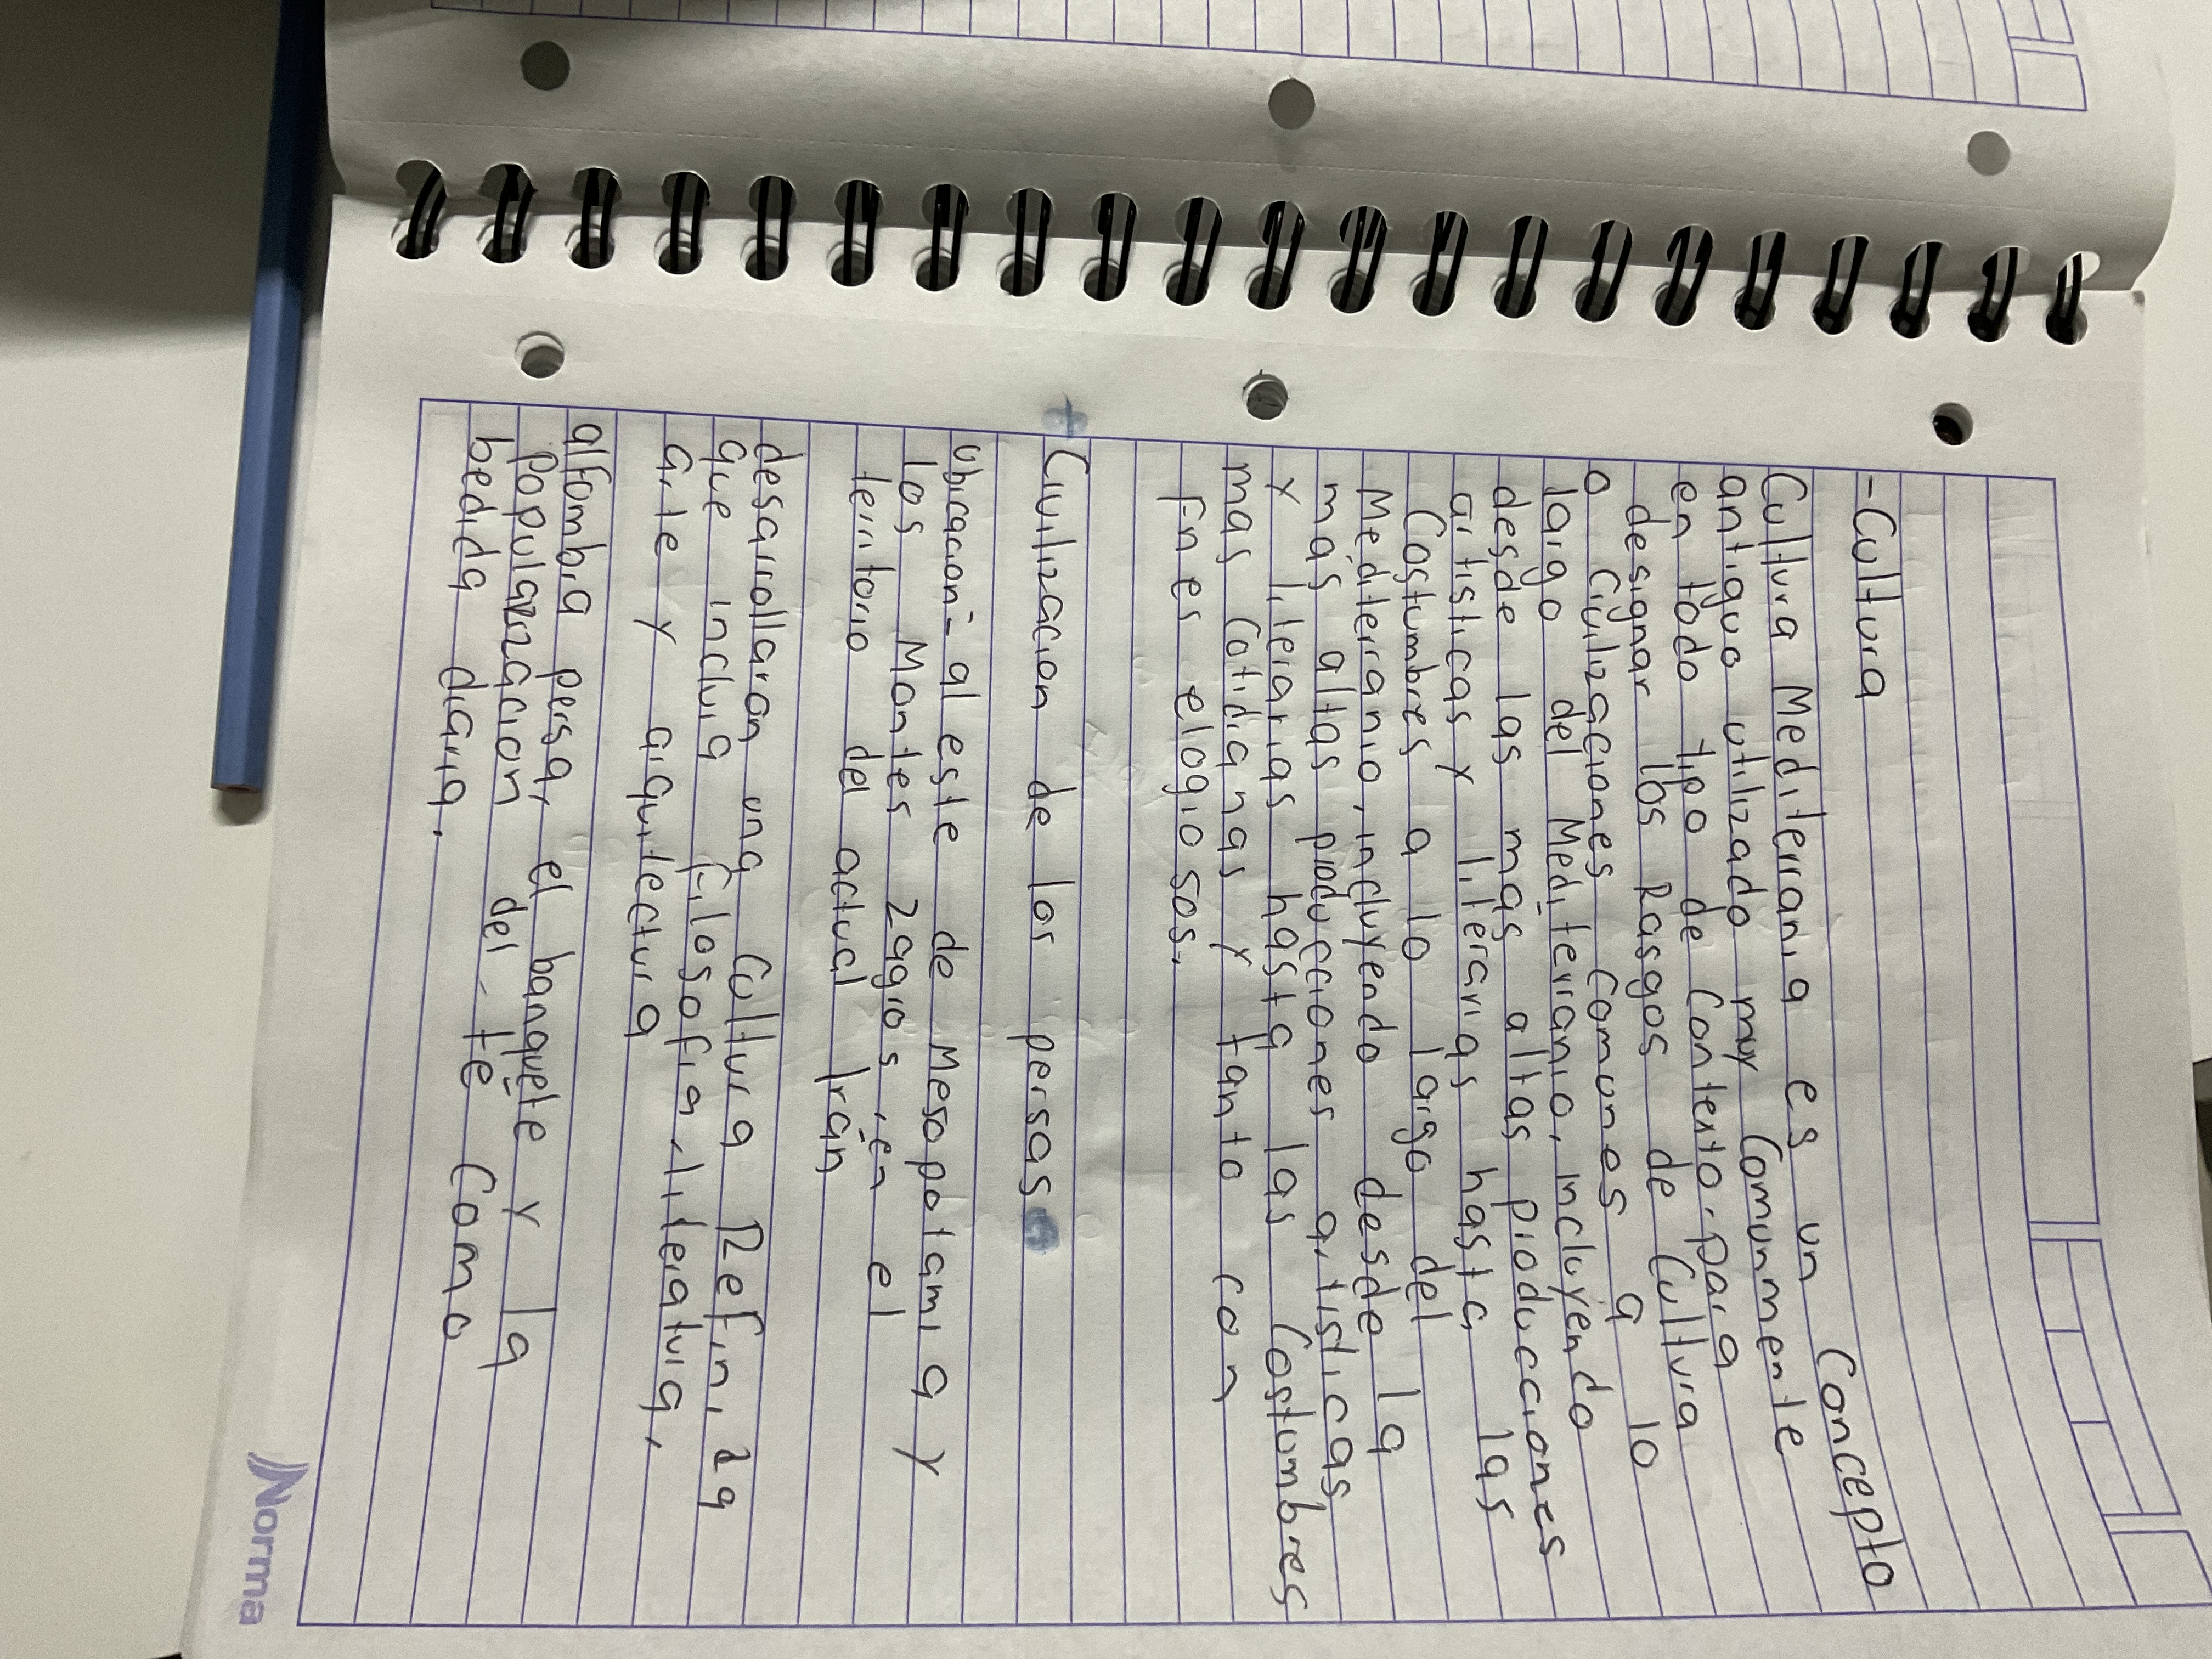 -Cultura
Cultura Mediterrania es un Concepto
antiguo utilizado muy Comunmente
en todo tipo de Contexto. para
designar los Rasgos de Cultura
o Civilizaciones Comunes a lo
largo del Mediterranio, incluyendo
desde las mas altas producciones
artisticas y literarias hasta las
Costumbres a lo largo del
Mediterranio, incluyendo desde la
mas altas producciones artisticas
y literarias hasta las Costumbres
mas Cotidianas y tanto con
Fnes elogiosos.
Civilizacion de los persas
Ubicacion- al este de Mesopotamia y
los Montes Zagros, en el
territorio del actual Irán
desarrollaron una Cultura Refinida
que incluia Filosofia, literatura,
Arte y arquitectura
alfombra persa, el banquete y la
Popularizacion del te Como
bedida diaria.
Norma